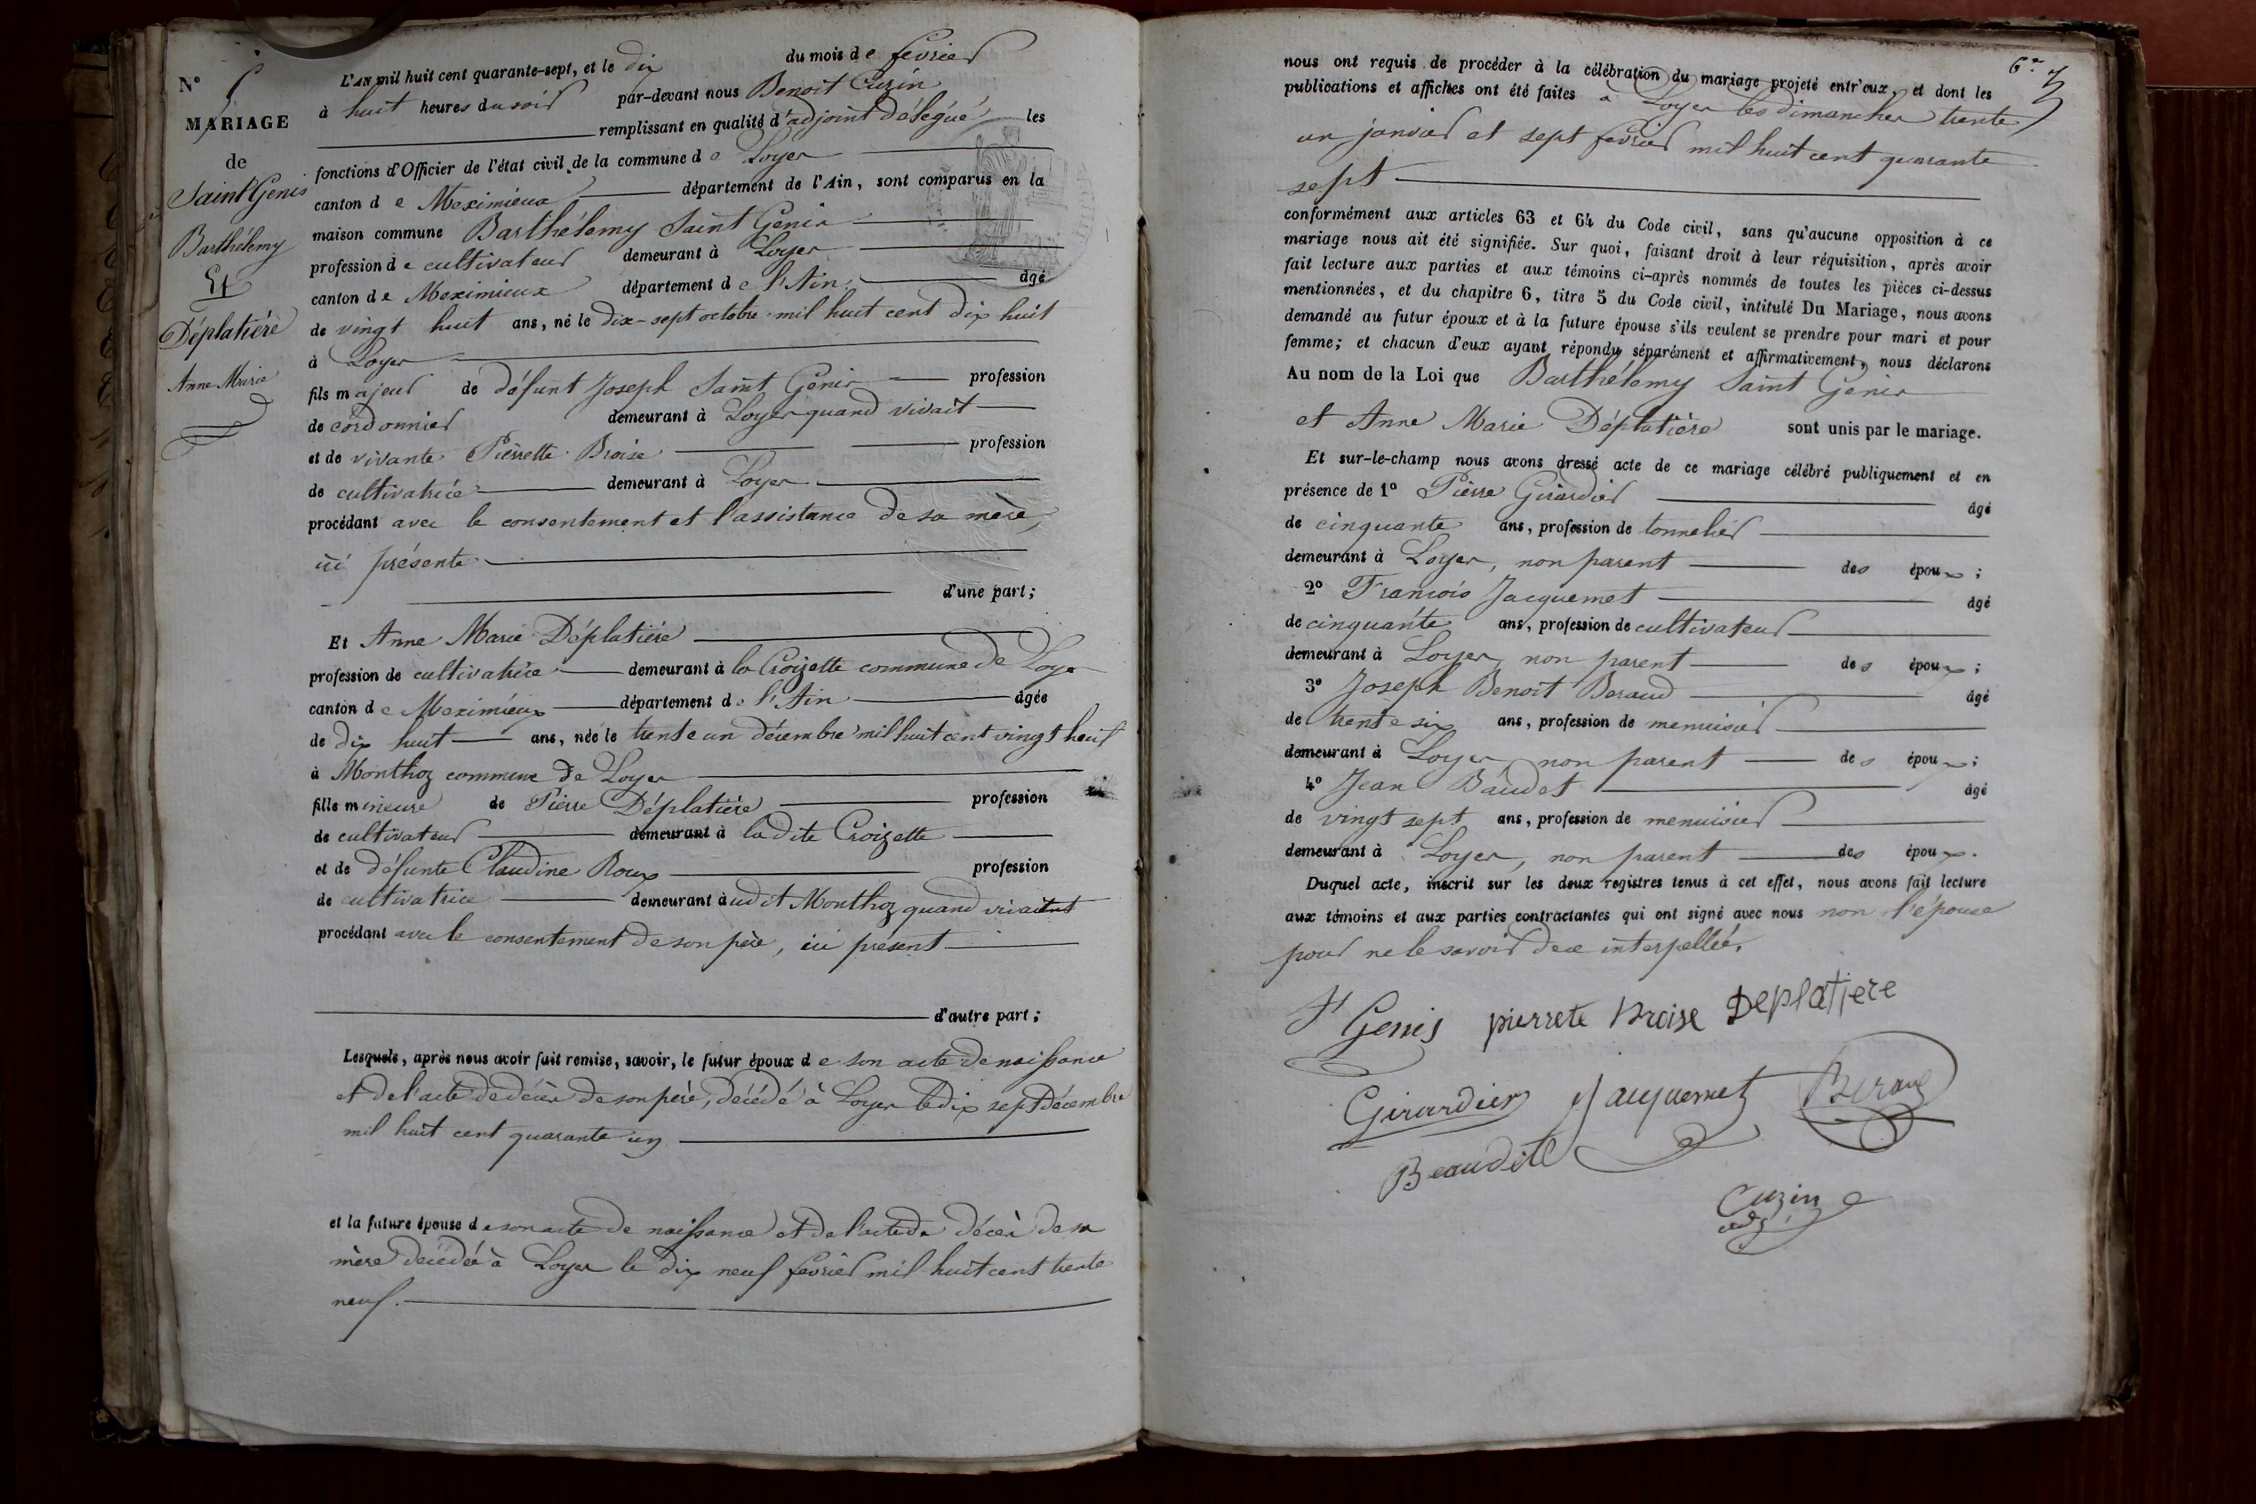 N°
MARIAGE
de
Saint Genis
Barthélemy
Et
Déplatière
Anne Marie
L'AN mil huit cent quarante-sept, et le dix du mois de février
à huit heures du soir par-devant nous Benoit Cuzin
remplissant en qualité d'adjoint délégué les
fonctions d'Officier de l'état civil de la commune de Loyes
canton de Meximieux département de l'Ain, sont comparus en la
maison commune Barthélemy Saint Genis
profession de cultivateur demeurant à Loyes
canton de Meximieux département de l'Ain âgé
de vingt huit ans, né le dix-sept octobre mil huit cent dix huit
à Loyes
fils majeur de défunt Joseph Saint Genis profession
de cordonnier demeurant à Loyes quand vivait
et de vivante Pierrette Broise profession
de cultivatrice demeurant à Loyes
procédant avec le consentement et l'assistance de sa mère,
ici présente
d'une part;
Et Anne Marie Déplatière
profession de cultivatrice demeurant à la Croizette commune de Loyes
canton de Meximieux département de l'Ain âgée
de dix huit ans, née le trente un décembre mil huit cent vingt huit
à Monthoz commune de Loyes
fille mineure de Pierre Déplatière profession
de cultivateur demeurant à ladite Croizette
et de défunte Claudine Roux profession
de cultivatrice demeurant audit Monthoz quand vivait
procédant avec le consentement de son père, ici présent
d'autre part;
Lesquels, après nous avoir fait remise, savoir, le futur époux de son acte de naissance
et de l'acte de décès de son père, décédé à Loyes le dix sept décembre
mil huit cent quarante un
et la future épouse de son acte de naissance et de l'acte de décès de sa
mère décédée à Loyes le dix neuf février mil huit cent trente
neuf.
nous ont requis de procéder à la célébration du mariage projeté entr'eux, et dont les
publications et affiches ont été faites à Loyes les dimanches trente
un janvier et sept février mil huit cent quarante
sept
conformément aux articles 63 et 64 du Code civil, sans qu'aucune opposition à ce
mariage nous ait été signifiée. Sur quoi, faisant droit à leur réquisition, après avoir
fait lecture aux parties et aux témoins ci-après nommés de toutes les pièces ci-dessus
mentionnées, et du chapitre 6, titre 5 du Code civil, intitulé Du Mariage, nous avons
demandé au futur époux et à la future épouse s'ils veulent se prendre pour mari et pour
femme; et chacun d'eux ayant répondu séparément et affirmativement, nous déclarons
Au nom de la Loi que Barthélemy Saint Genis
et Anne Marie Déplatière sont unis par le mariage.
Et sur-le-champ nous avons dressé acte de ce mariage célébré publiquement et en
présence de 1° Pierre Girardier âgé
de cinquante ans, profession de tonnelier
demeurant à Loyes, non parent des époux;
2° François Jacquemet âgé
de cinquante ans, profession de cultivateur
demeurant à Loyes, non parent des époux;
3° Joseph Benoit Beraud âgé
de trente six ans, profession de menuisier
demeurant à Loyes, non parent des époux;
4° Jean Baudet âgé
de vingt sept ans, profession de menuisier
demeurant à Loyes, non parent des époux.
Duquel acte, inscrit sur les deux registres tenus à cet effet, nous avons fait lecture
aux témoins et aux parties contractantes qui ont signé avec nous non l'épouse
pour ne le savoir de ce interpellée.
St Genis pierrete Broise Deplatiere
Girardier Jacquemet Beraud
Beaudete
Cuzin